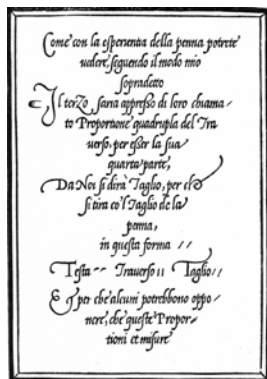 Come con la esperentia della penna potrete
uedere, seguendo il modo mio
sopradetto
Il terzo, saria appresso di loro chiama-
to Proportione quadrupla del Tra
uerso, per esser la sua
quarta parte,
Da Noi si dirà Taglio, per che
si tira co'l Taglio de la
penna,
in questa forma //
Testa -- Trauerso ıı Taglio //
Et per che alcuni potrebbono oppo-
nere, che queste Propor-
tioni et misure